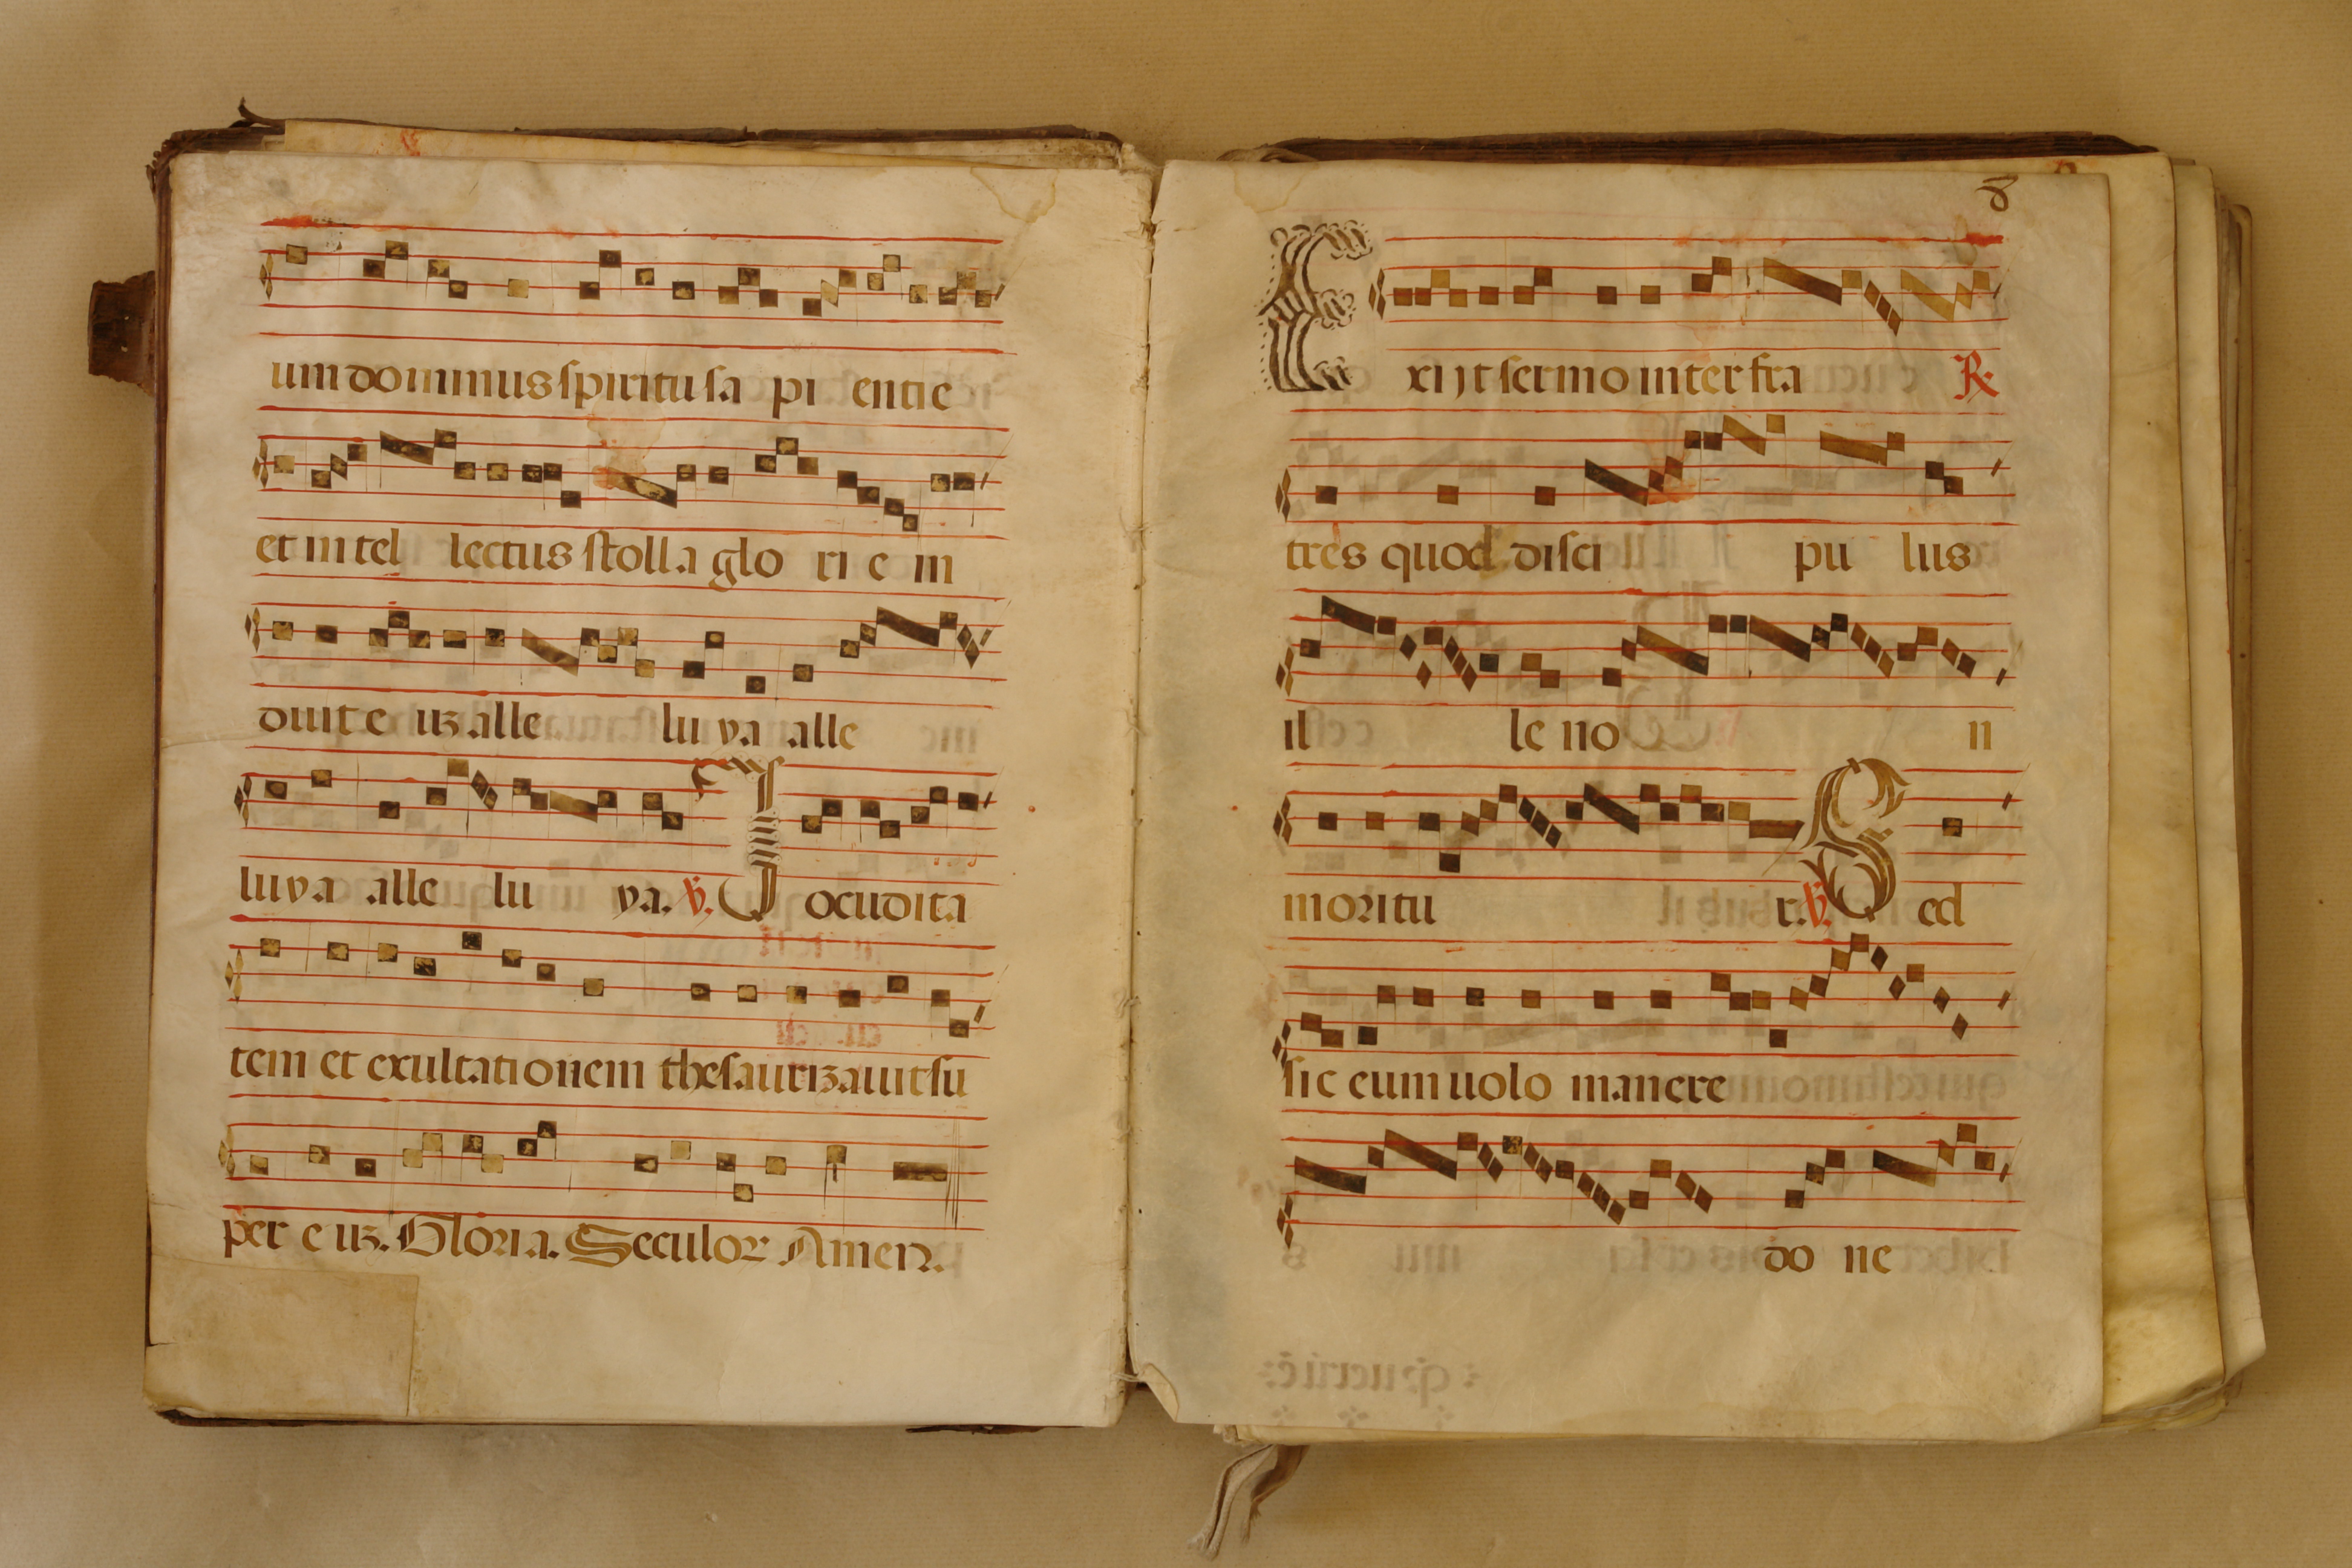 um dominus spiritu sa pi entie
et in tel lectus stolla glo ri e in
duit e uz alle lu ya alle
luya alle lu ya. V. Jocudita
tem et exultationem thesaurizauit su
per e uz. Gloria. Seculor Amen.
8
Exijt sermo inter fra R.
tres quod disci pu lus
il le no n
moritu r. V. Sed
sic eum uolo manere
do ne